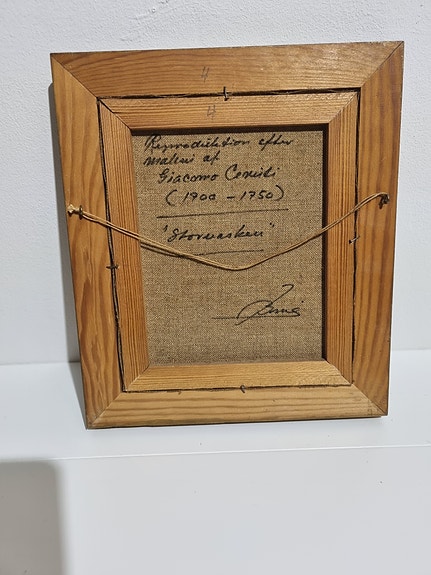 4
4
Reproduktion efter
maleri af
Giacomo Ceruti
(1700 - 1750)
"Storvasken"